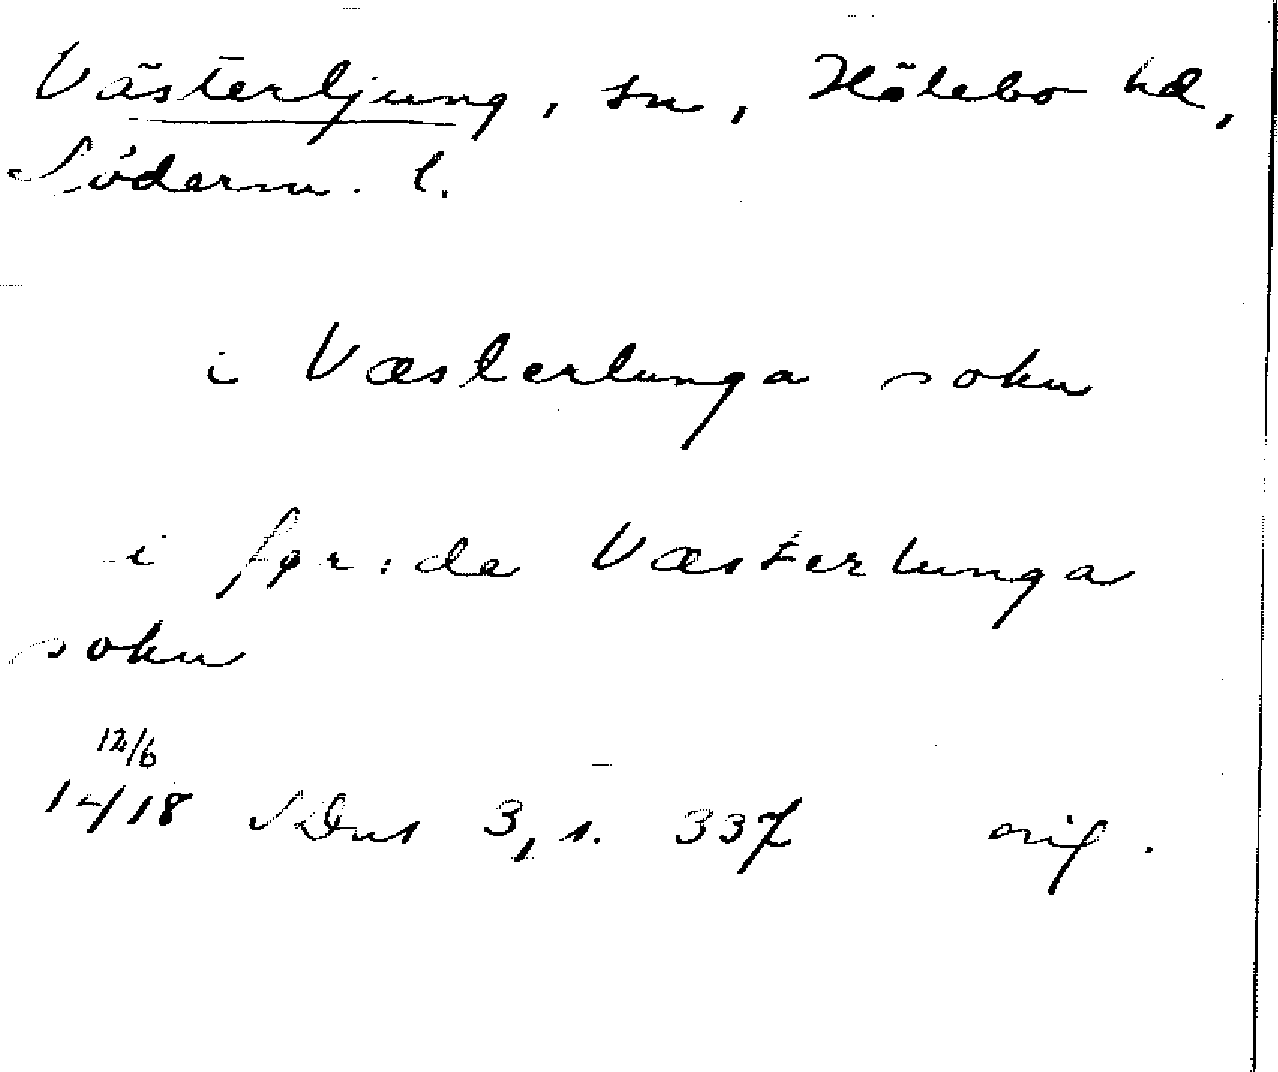 Västerljung, sn, Hölebo hd,
Söderm. l.
i Væsterlunga sokn
i før:de Væsterlunga
sokn
12/6
14/18 SDns 3, s. 337 orig.